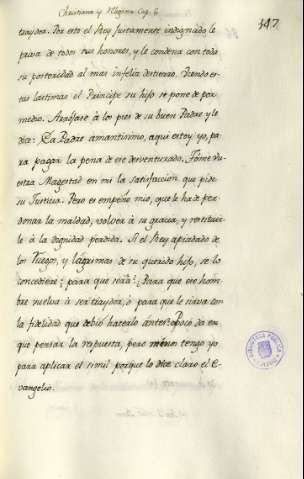 Christiana y Religiosa Cap. 6.
147.
traydor. Por esto el Rey justamente indignado le
priva de todos sus honores, y le condena con toda
su posteridad al mas infeliz destierro. Viendo es-
tas lastimas el Principe su hijo se pone de por
medio. Arrojase à los pies de su buen Padre, y le
dice: Ea Padre amantisimo, aqui estoy yo, pa-
ra pagar la pena de ese desventurado. Tome Vu-
estra Magestad en mi la satisfaccion que pide
su Justicia. Pero es empeño mio, que le ha de per-
donar la maldad, volver à su gracia, y restituir-
le à la dignidad perdida. Si el Rey apiadado de
los ruegos, y lágrimas de su querido hijo, se lo
concediese: ¿para que seria? ¿Para que ese hom-
bre vuelva à ser traydor, ò para que le sirva con
la fidelidad que debiò hacerlo antes? Poco da en
que pensar la respuesta, pero menos tengo yo
para aplicar el simil porque lo dice claro el E-
vangelio.
BIBLIOTECA PUBLICA